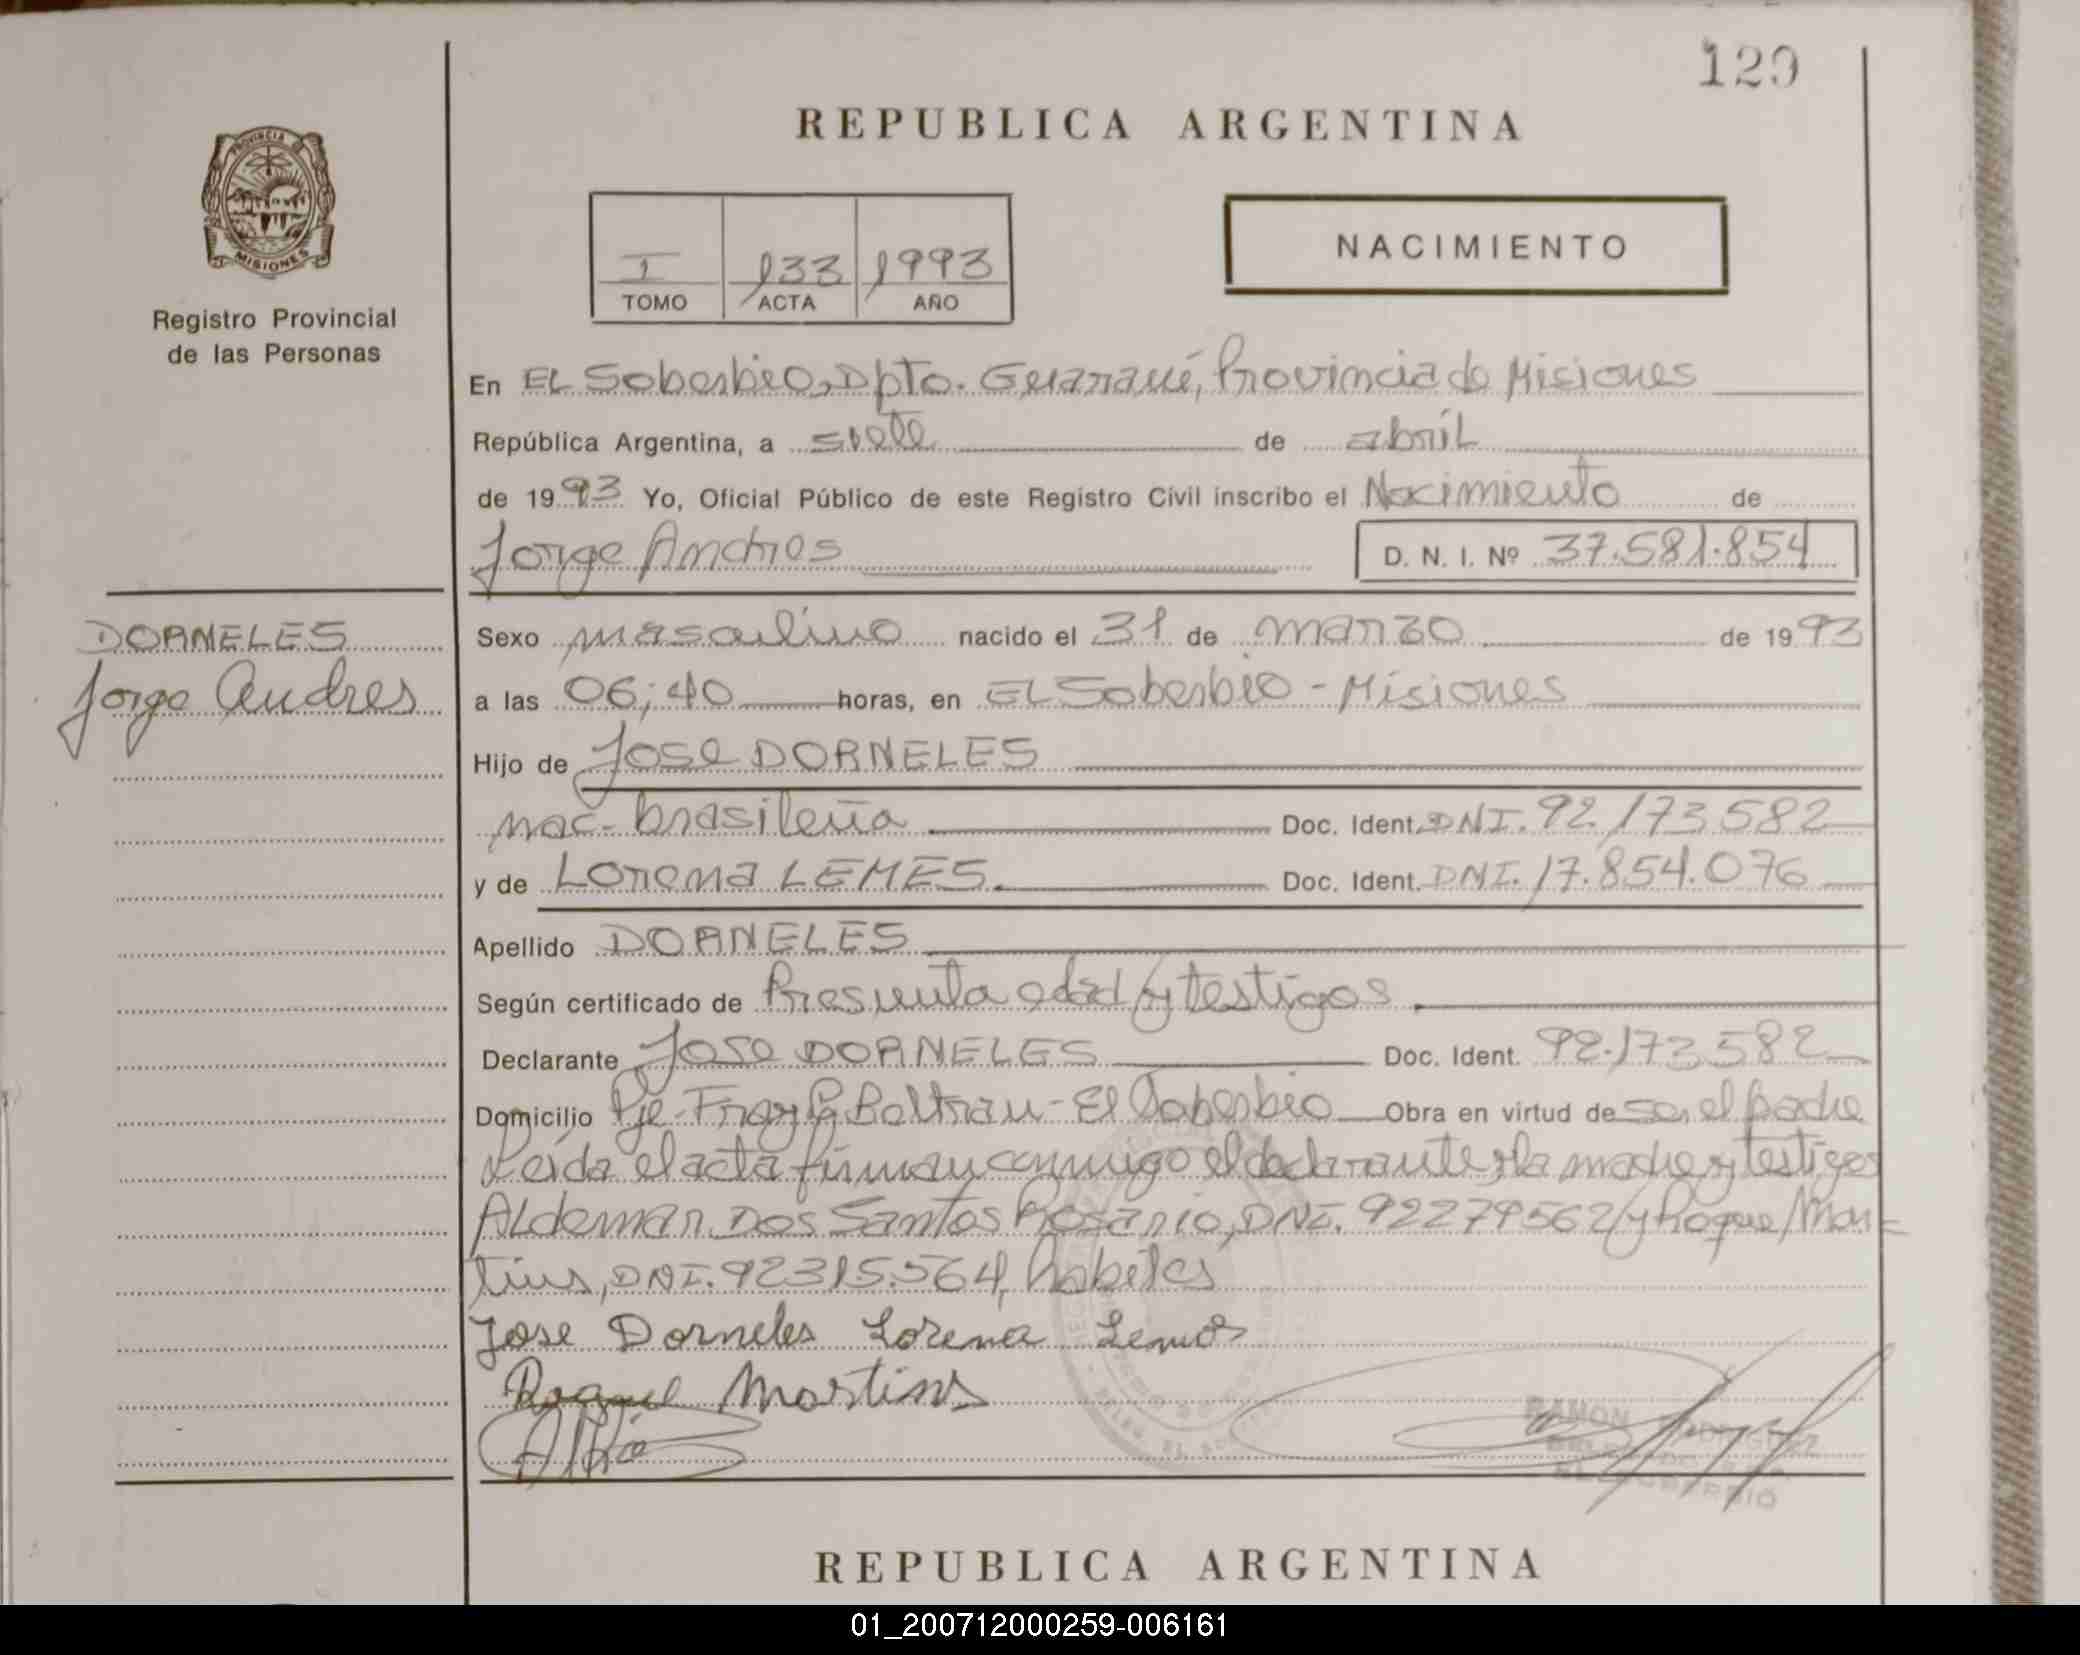 129
REPUBLICA ARGENTINA
PROVINCIA DE
MISIONES
Registro Provincial
de las Personas
I 133 1993
TOMO ACTA AÑO
NACIMIENTO
En EL Soberbio, Dpto. Guaraní, Provincia de Misiones
República Argentina, a siete de abril
de 1993 Yo, Oficial Público de este Registro Civil inscribo el Nacimiento de
Jorge Andres D. N. I. Nº 37.581.854
DORNELES
Jorge Andres
Sexo masculino nacido el 31 de marzo de 1993
a las 06;40 horas, en EL Soberbio - Misiones
Hijo de Jose DORNELES
nac- brasileña Doc. Ident. DNI. 92.173.582
y de Lorena LEMES. Doc. Ident. DNI. 17.854.076
Apellido DORNELES
Según certificado de Presunta edad y testigos.
Declarante Jose DORNELES Doc. Ident. 92.173.582
Domicilio Pje- Fray L. Beltran - El Soberbio Obra en virtud de ser el padre
Leida el acta firman conmigo el declarante y la madre y testigos
Aldemar Dos Santos Rosario, DNI. 92279562 y Roque Mar-
tins, DNI. 92315.564, habiles
Jose Dorneles Lorena Lemes
Roque Martins
RAMON RODRIGUEZ
EL SOBERBIO
REPUBLICA ARGENTINA
01_200712000259-006161